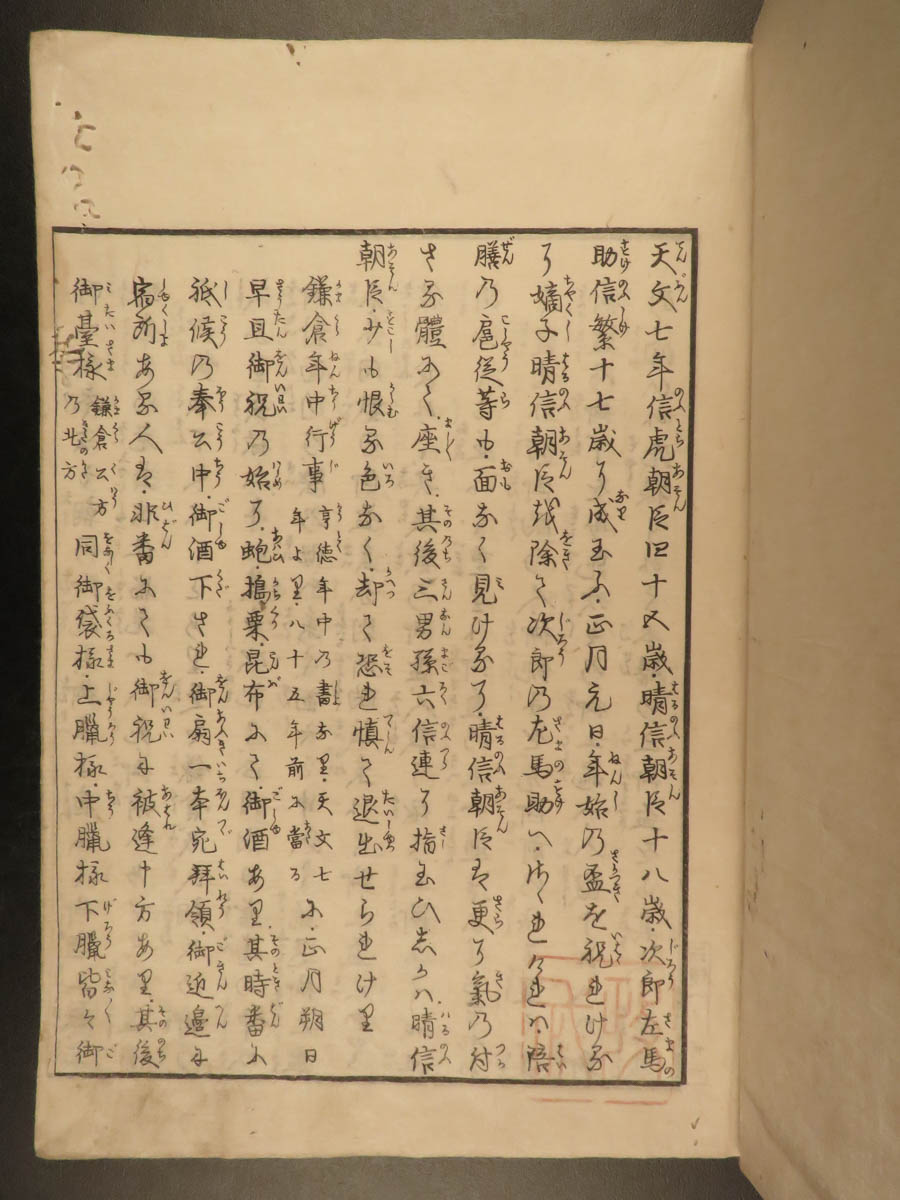 天文七年信虎朝臣四十五歳・晴信朝臣十八歳・次郎左馬
助信繁十七歳に成玉ふ・正月元日・年始乃盃を祝れける
に嫡子晴信朝臣越除て次郎乃左馬助へ・されけれハ・陪
膳乃扈従等も・面なく見けるに・晴信朝臣は更に氣乃付
さる體にて・座しき・其後三男孫六信連に指玉ひしかハ・晴信
朝臣・少も恨る色なく・却て恐れ慎て退出せられけり
鎌倉年中行事 享徳年中乃書なり・天文七年より・八十五年前に當る に・正月朔日
早旦御祝乃始に・蚫・搗栗・昆布にて・御酒あり・其時番に
祗候乃奉公中・御酒下され・御扇一本宛拝領・御近邊に
宿所ある人は・非番にても御祝に被逢申方あり・其後
御臺様 鎌倉公方乃北方 同御袋様・上臈様・中臈様下臈皆々御